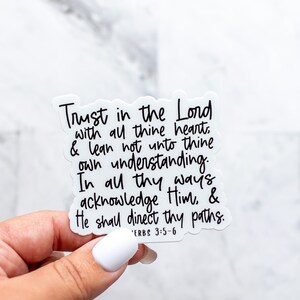 Trust in the Lord
with all thine heart,
& lean not unto thine
own understanding.
In all thy ways
acknowledge Him, &
He shall direct thy paths.
ERBS 3:5-6